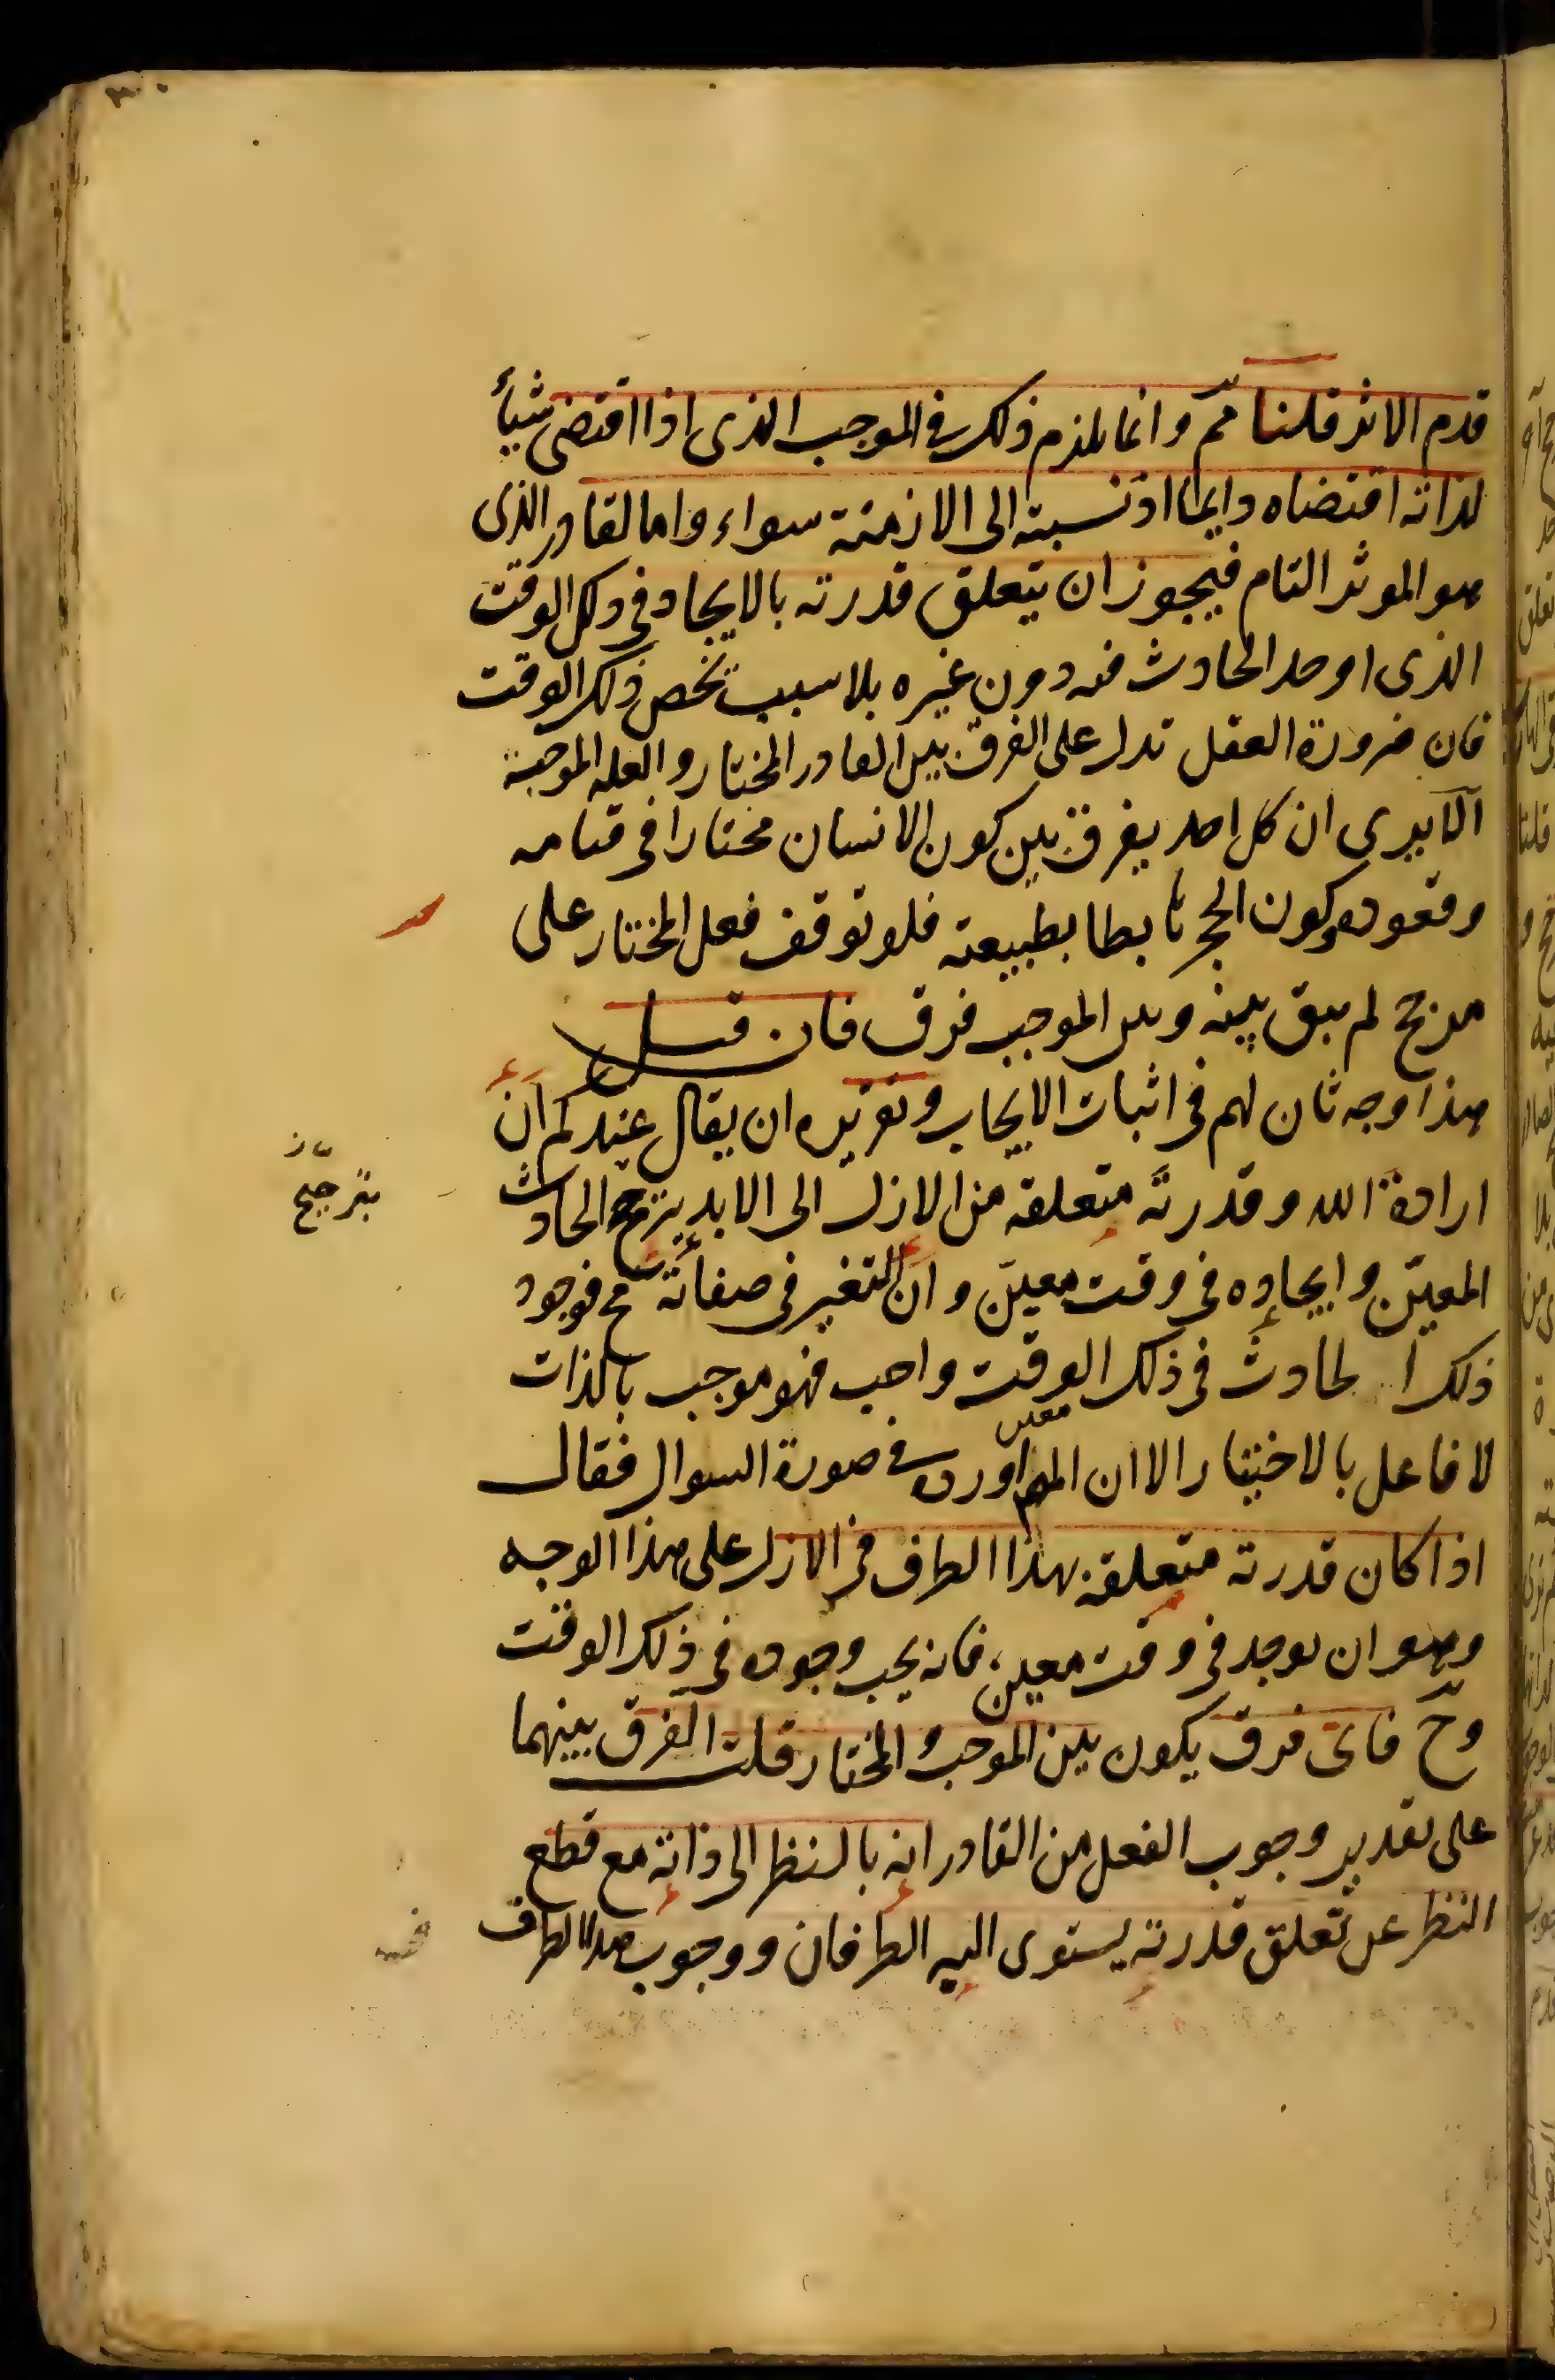 قدم الاثر قلنا مم وانما يلزم ذلك فى الموجب الذى اذا اقتضى شيأ
لذاته اقتضاه دايما اذ نسبته الى الازمنة سواء واما القادر الذى
هو الموثر التام فيجوز ان يتعلق قدرته بالايجاد فى ذلك الوقت
الذى اوحد الحادث فيه دون غيره بلا سبب يخص ذلك الوقت
فان ضرورة العقل تدل على الفرق بين القادر المختار والعلة الموجبة
الا يرى ان كل احد يفرق بين كون الانسان مختارا فى قيامه
وقعوده وكون الحجر هابطا بطبيعته فلو توقف فعل المختار على
مرجح لم يبق بينه وبين الموجب فرق فان قيل
هذا وجه ثان لهم فى اثبات الايجاب وتقريره ان يقال عندكم ان
ارادة الله وقدرته متعلقة من الازل الى الابد بترجح الحادث
بترجيح
المعين وايجاده فى وقت معين وان التغير فى صفاته مح فوجود
ذلك الحادث فى ذلك الوقت واجب فهو موجب بالذات
لا فاعل بالاختيار الا ان المص اورده فى صورة السوال فقال
معين
اذا كان قدرته متعلقة بهذا الطرف فى الازل على هذا الوجه
وهو ان يوجد فى وقت معين فانه يجب وجوده فى ذلك الوقت
وح فاى فرق يكون بين الموجب والمختار قلت الفرق بينهما
على تقدير وجوب الفعل من القادر انه بالنظر الى ذاته مع قطع
النظر عن تعلق قدرته يستوى اليه الطرفان ووجوب هذا الطرف